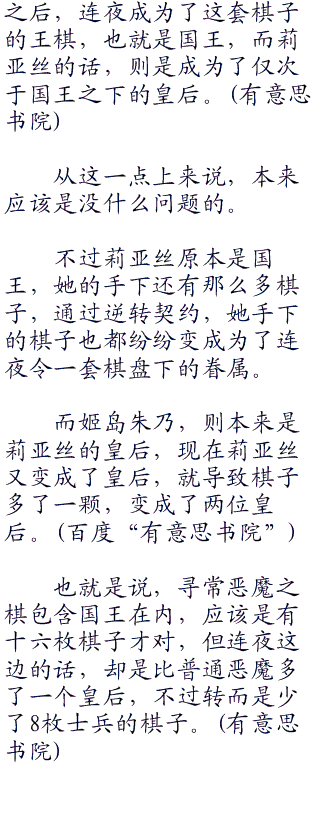 之后，连夜成为了这套棋子
的王棋，也就是国王，而莉
亚丝的话，则是成为了仅次
于国王之下的皇后。(有意思
书院)
从这一点上来说，本来
应该是没什么问题的。
不过莉亚丝原本是国
王，她的手下还有那么多棋
子，通过逆转契约，她手下
的棋子也都纷纷变成为了连
夜令一套棋盘下的眷属。
而姬岛朱乃，则本来是
莉亚丝的皇后，现在莉亚丝
又变成了皇后，就导致棋子
多了一颗，变成了两位皇
后。(百度“有意思书院”)
也就是说，寻常恶魔之
棋包含国王在内，应该是有
十六枚棋子才对，但连夜这
边的话，却是比普通恶魔多
了一个皇后，不过转而是少
了8枚士兵的棋子。(有意思
书院)